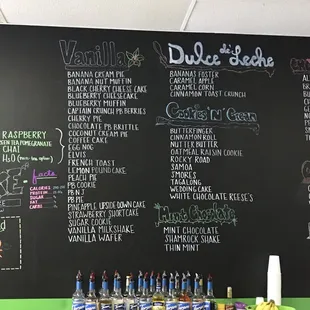 RASPBERRY
GREEN TEA POMEGRANATE
CHAI
H2O
facts
CALORIES
PROTEIN
SUGAR
FAT
CARBS
Vanilla
BANANA CREAM PIE
BANANA NUT MUFFIN
BLACK CHERRY CHEESE CAKE
BLUEBERRY CHEESECAKE
BLUEBERRY MUFFIN
CAPTAIN CRUNCH PB BERRIES
CHERRY PIE
CHOCOLATE PB BRITTLE
COCONUT CREAM PIE
COFFEE CAKE
EGG NOG
ELVIS
FRENCH TOAST
LEMON POUND CAKE
PEACH PIE
PB COOKIE
PB N J
PB PIE
PINEAPPLE UPSIDE DOWN CAKE
STRAWBERRY SHORTCAKE
SUGAR COOKIE
VANILLA MILKSHAKE
VANILLA WAFER
Dulce de Leche
BANANAS FOSTER
CARAMEL APPLE
CARAMEL CORN
CINNAMON TOAST CRUNCH
Cookies 'N' Cream
BUTTERFINGER
CINNAMON ROLL
NUTTER BUTTER
OATMEAL RAISIN COOKIE
ROCKY ROAD
SAMOA
S'MORES
TAGALONG
WEDDING CAKE
WHITE CHOCOLATE REESE'S
Mint Chocolate
MINT CHOCOLATE
SHAMROCK SHAKE
THIN MINT